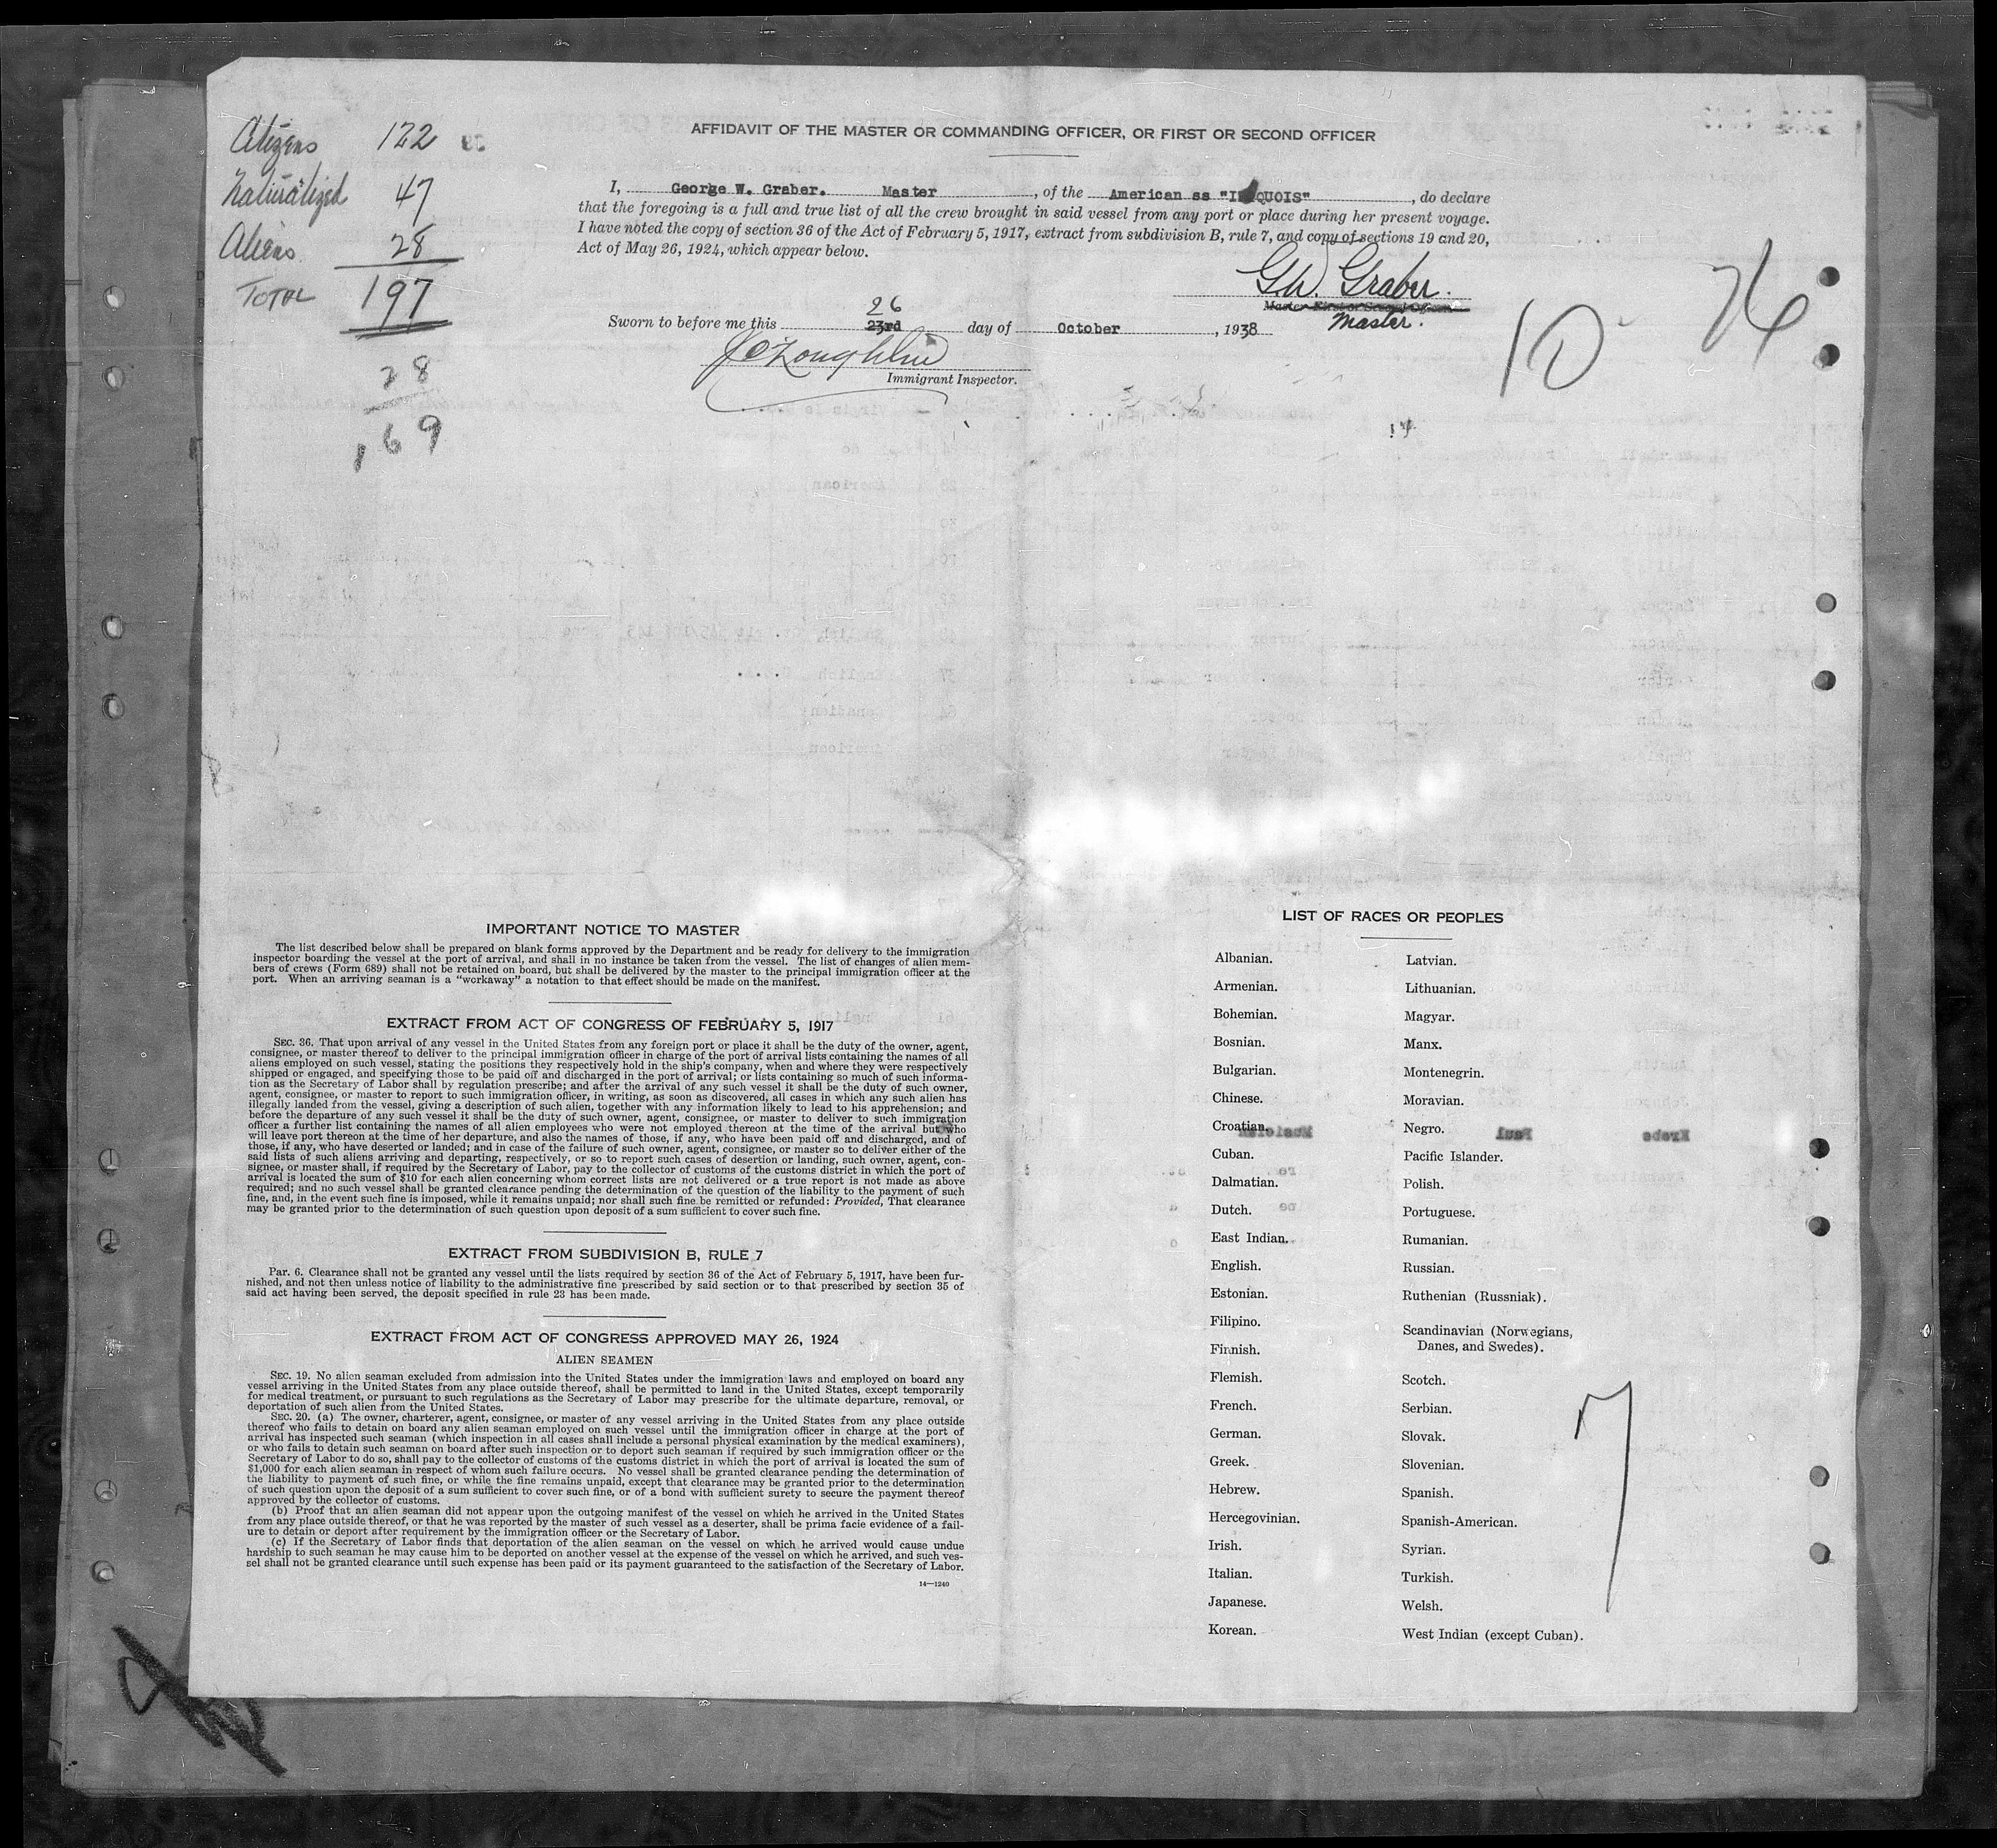 Citizens 122
Naturalized 47
Aliens 28
TOTAL 197
28
169
AFFIDAVIT OF THE MASTER OR COMMANDING OFFICER, OR FIRST OR SECOND OFFICER
I, George W. Graber. Master, of the American ss "I QUOIS", do declare
that the foregoing is a full and true list of all the crew brought in said vessel from any port or place during her present voyage.
I have noted the copy of section 36 of the Act of February 5, 1917, extract from subdivision B, rule 7, and copy of sections 19 and 20,
Act of May 26, 1924, which appear below.
G.W. Graber.
Master First or Second Officer.
Master.
26
Sworn to before me this 23rd day of October, 1938
Immigrant Inspector.
10 26
IMPORTANT NOTICE TO MASTER
The list described below shall be prepared on blank forms approved by the Department and be ready for delivery to the immigration
inspector boarding the vessel at the port of arrival, and shall in no instance be taken from the vessel. The list of changes of alien mem-
bers of crews (Form 689) shall not be retained on board, but shall be delivered by the master to the principal immigration officer at the
port. When an arriving seaman is a "workaway" a notation to that effect should be made on the manifest.
EXTRACT FROM ACT OF CONGRESS OF FEBRUARY 5, 1917
SEC. 36. That upon arrival of any vessel in the United States from any foreign port or place it shall be the duty of the owner, agent,
consignee, or master thereof to deliver to the principal immigration officer in charge of the port of arrival lists containing the names of all
aliens employed on such vessel, stating the positions they respectively hold in the ship's company, when and where they were respectively
shipped or engaged, and specifying those to be paid off and discharged in the port of arrival; or lists containing so much of such informa-
tion as the Secretary of Labor shall by regulation prescribe; and after the arrival of any such vessel it shall be the duty of such owner,
agent, consignee, or master to report to such immigration officer, in writing, as soon as discovered, all cases in which any such alien has
illegally landed from the vessel, giving a description of such alien, together with any information likely to lead to his apprehension; and
before the departure of any such vessel it shall be the duty of such owner, agent, consignee, or master to deliver to such immigration
officer a further list containing the names of all alien employees who were not employed thereon at the time of the arrival but who
will leave port thereon at the time of her departure, and also the names of those, if any, who have been paid off and discharged, and of
those, if any, who have deserted or landed; and in case of the failure of such owner, agent, consignee, or master so to deliver either of the
said lists of such aliens arriving and departing, respectively, or so to report such cases of desertion or landing, such owner, agent, con-
signee, or master shall, if required by the Secretary of Labor, pay to the collector of customs of the customs district in which the port of
arrival is located the sum of $10 for each alien concerning whom correct lists are not delivered or a true report is not made as above
required; and no such vessel shall be granted clearance pending the determination of the question of the liability to the payment of such
fine, and, in the event such fine is imposed, while it remains unpaid; nor shall such fine be remitted or refunded: Provided, That clearance
may be granted prior to the determination of such question upon deposit of a sum sufficient to cover such fine.
EXTRACT FROM SUBDIVISION B, RULE 7
Par. 6. Clearance shall not be granted any vessel until the lists required by section 36 of the Act of February 5, 1917, have been fur-
nished, and not then unless notice of liability to the administrative fine prescribed by said section or to that prescribed by section 35 of
said act having been served, the deposit specified in rule 23 has been made.
EXTRACT FROM ACT OF CONGRESS APPROVED MAY 26, 1924
ALIEN SEAMEN
SEC. 19. No alien seaman excluded from admission into the United States under the immigration laws and employed on board any
vessel arriving in the United States from any place outside thereof, shall be permitted to land in the United States, except temporarily
for medical treatment, or pursuant to such regulations as the Secretary of Labor may prescribe for the ultimate departure, removal, or
deportation of such alien from the United States.
SEC. 20. (a) The owner, charterer, agent, consignee, or master of any vessel arriving in the United States from any place outside
thereof who fails to detain on board any alien seaman employed on such vessel until the immigration officer in charge at the port of
arrival has inspected such seaman (which inspection in all cases shall include a personal physical examination by the medical examiners),
or who fails to detain such seaman on board after such inspection or to deport such seaman if required by such immigration officer or the
Secretary of Labor to do so, shall pay to the collector of customs of the customs district in which the port of arrival is located the sum of
$1,000 for each alien seaman in respect of whom such failure occurs. No vessel shall be granted clearance pending the determination of
the liability to payment of such fine, or while the fine remains unpaid, except that clearance may be granted prior to the determination
of such question upon the deposit of a sum sufficient to cover such fine, or of a bond with sufficient surety to secure the payment thereof
approved by the collector of customs.
(b) Proof that an alien seaman did not appear upon the outgoing manifest of the vessel on which he arrived in the United States
from any place outside thereof, or that he was reported by the master of such vessel as a deserter, shall be prima facie evidence of a fail-
ure to detain or deport after requirement by the immigration officer or the Secretary of Labor.
(c) If the Secretary of Labor finds that deportation of the alien seaman on the vessel on which he arrived would cause undue
hardship to such seaman he may cause him to be deported on another vessel at the expense of the vessel on which he arrived, and such ves-
sel shall not be granted clearance until such expense has been paid or its payment guaranteed to the satisfaction of the Secretary of Labor.
14—1240
LIST OF RACES OR PEOPLES
Albanian.
Armenian.
Bohemian.
Bosnian.
Bulgarian.
Chinese.
Croatian.
Cuban.
Dalmatian.
Dutch.
East Indian.
English.
Estonian.
Filipino.
Finnish.
Flemish.
French.
German.
Greek.
Hebrew.
Hercegovinian.
Irish.
Italian.
Japanese.
Korean.
Latvian.
Lithuanian.
Magyar.
Manx.
Montenegrin.
Moravian.
Negro.
Pacific Islander.
Polish.
Portuguese.
Rumanian.
Russian.
Ruthenian (Russniak).
Scandinavian (Norwegians,
Danes, and Swedes).
Scotch.
Serbian.
Slovak.
Slovenian.
Spanish.
Spanish-American.
Syrian.
Turkish.
Welsh.
West Indian (except Cuban).
7